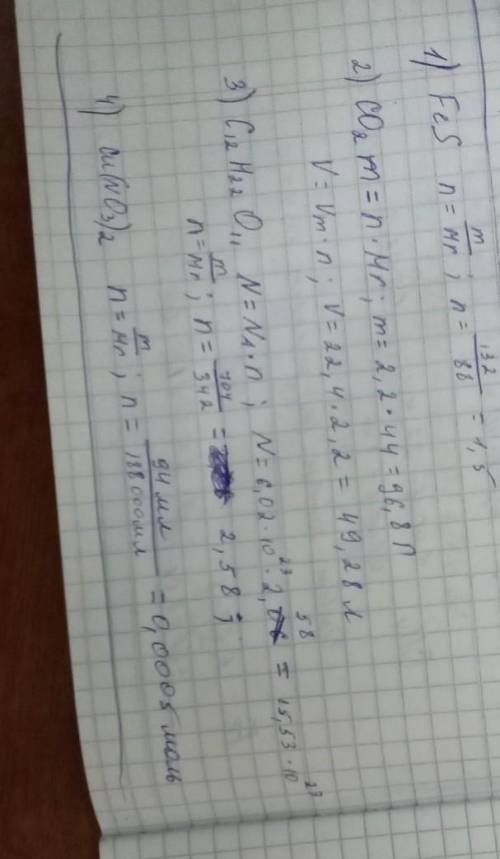 1) FeS n = m/Mr; n = 132/88 = 1,5
2) CO₂ m = n · Mr; m = 2,2 · 44 = 96,8 г
V = Vm · n; V = 22,4 · 2,2 = 49,28 л
3) C₁₂H₂₂O₁₁ N = NA · n; N = 6,02 · 10²³ · 2,58 = 15,53 · 10²³
n = m/Mr; n = /342 = 2,58;
4) Cu(NO₃)₂ n = m/Mr; n = 94 мл/188000 мл = 0,0005 моль